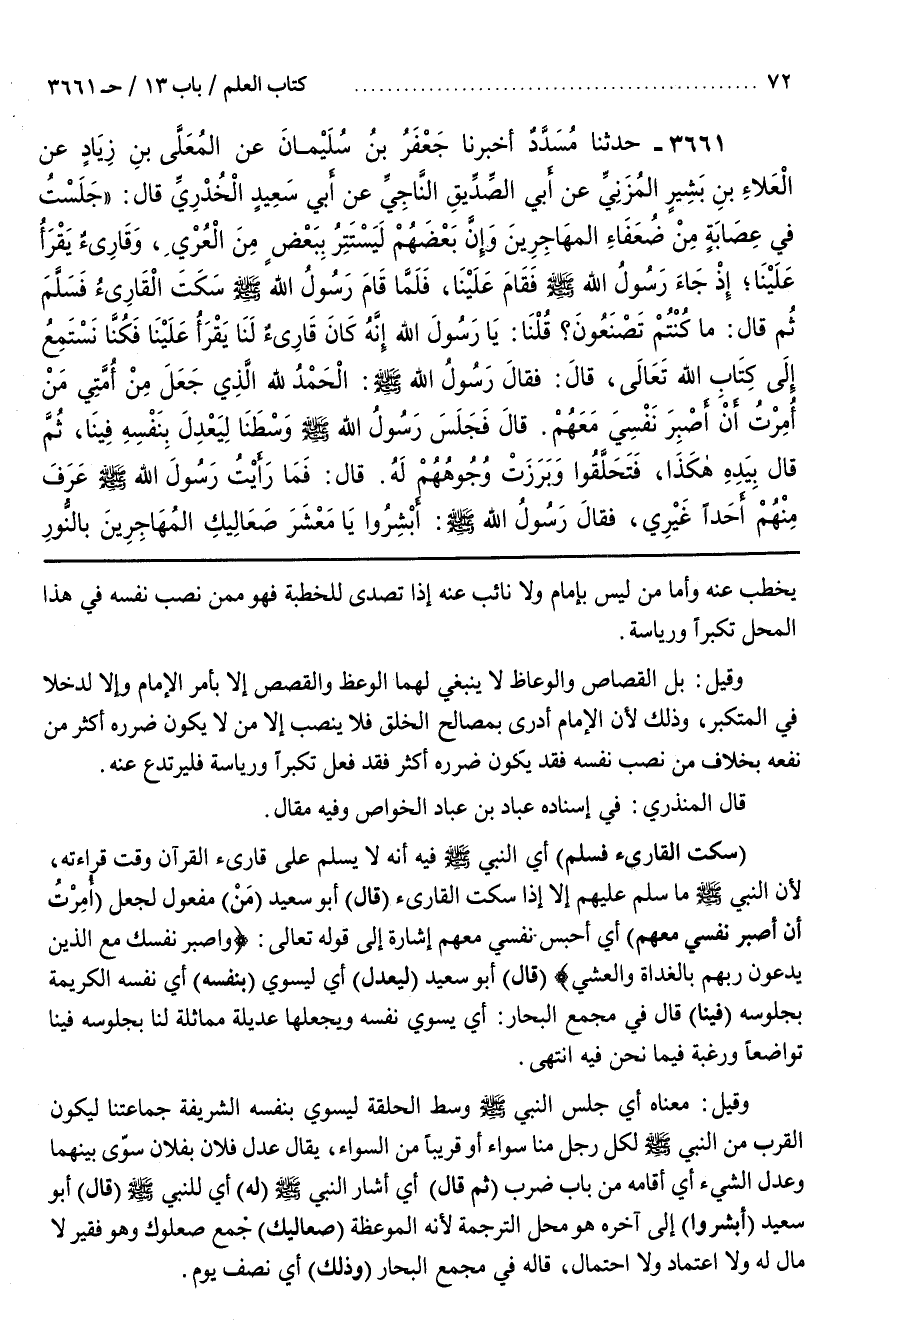 ٧٢ ........................................ كتاب العلم / باب ١٣ / حـ ٣٦٦١
٣٦٦١ - حدثنا مُسَدَّدٌ أخبرنا جَعْفَرُ بنُ سُلَيْمـانَ عن المُعَلَّى بنِ زِيَادٍ عن
الْعَلاءِ بنِ بَشِيرٍ المُزَنِيِّ عن أبي الصِّدِّيقِ النَّاجِيِّ عن أبي سَعِيدٍ الْخُدْرِيِّ قال: «جَلَسْتُ
في عِصَابَةٍ مِنْ ضُعَفَاءِ المهَاجِرِينَ وَإِنَّ بَعْضَهُمْ لَيَسْتَتِرُ بِبَعْضٍ مِنَ الْعُرْيِ، وَقَارِىءٌ يَقْرَأُ
عَلَيْنَا؛ إِذْ جَاءَ رَسُولُ الله ﷺ فَقَامَ عَلَيْنَا، فَلَمَّا قَامَ رَسُولُ الله ﷺ سَكَتَ الْقَارِىءُ فَسَلَّمَ
ثُم قال: ما كُنْتُمْ تَصْنَعُونَ؟ قُلْنَا: يَا رَسُولَ الله إِنَّهُ كَانَ قَارِىءٌ لَنَا يَقْرَأُ عَلَيْنَا فَكُنَّا نَسْتَمِعُ
إِلَى كِتَابِ الله تَعَالَى، قال: فقالَ رَسُولُ الله ﷺ: الْحَمْدُ لله الَّذِي جَعَلَ مِنْ أُمَّتِي مَنْ
أُمِرْتُ أَنْ أَصْبِرَ نَفْسِيَ مَعَهُمْ. قالَ فَجَلَسَ رَسُولُ الله ﷺ وَسْطَنَا لِيَعْدِلَ بِنَفْسِهِ فِينَا، ثُمَّ
قال بِيَدِهِ هٰكَذَا، فَتَحَلَّقُوا وَبَرَزَتْ وُجُوهُهُمْ لَهُ. قال: فَمَا رَأَيْتُ رَسُولَ الله ﷺ عَرَفَ
مِنْهُمْ أَحَداً غَيْرِي، فقالَ رَسُولُ الله ﷺ: أَبْشِرُوا يَا مَعْشَرَ صَعَالِيكِ المُهَاجِرِينَ بالنُّورِ
يخطب عنه وأما من ليس بإمام ولا نائب عنه إذا تصدى للخطبة فهو ممن نصب نفسه في هذا
المحل تكبراً ورياسة.
وقيل: بل القصاص والوعاظ لا ينبغي لهما الوعظ والقصص إلا بأمر الإمام وإلا لدخلا
في المتكبر، وذلك لأن الإمام أدرى بمصالح الخلق فلا ينصب إلا من لا يكون ضرره أكثر من
نفعه بخلاف من نصب نفسه فقد يكون ضرره أكثر فقد فعل تكبراً ورياسة فليرتدع عنه.
قال المنذري: في إسناده عباد بن عباد الخواص وفيه مقال.
(سكت القارىء فسلم) أي النبي ﷺ فيه أنه لا يسلم على قارىء القرآن وقت قراءته،
لأن النبي ﷺ ما سلم عليهم إلا إذا سكت القارىء (قال) أبو سعيد (مَنْ) مفعول لجعل (أُمِرْتُ
أن أصبر نفسي معهم) أي أحبس نفسي معهم إشارة إلى قوله تعالى: ﴿واصبر نفسك مع الذين
يدعون ربهم بالغداة والعشي﴾ (قال) أبو سعيد (ليعدل) أي ليسوي (بنفسه) أي نفسه الكريمة
بجلوسه (فينا) قال في مجمع البحار: أي يسوي نفسه ويجعلها عديلة مماثلة لنا بجلوسه فينا
تواضعاً ورغبة فيما نحن فيه انتهى.
وقيل: معناه أي جلس النبي ﷺ وسط الحلقة ليسوي بنفسه الشريفة جماعتنا ليكون
القرب من النبي ﷺ لكل رجل منا سواء أو قريباً من السواء، يقال عدل فلان بفلان سوّى بينهما
وعدل الشيء أي أقامه من باب ضرب (ثم قال) أي أشار النبي ﷺ (له) أي للنبي ﷺ (قال) أبو
سعيد (أبشروا) إلى آخره هو محل الترجمة لأنه الموعظة (صعاليك) جُمع صعلوك وهو فقير لا
مال له ولا اعتماد ولا احتمال، قاله في مجمع البحار (وذلك) أي نصف يوم.